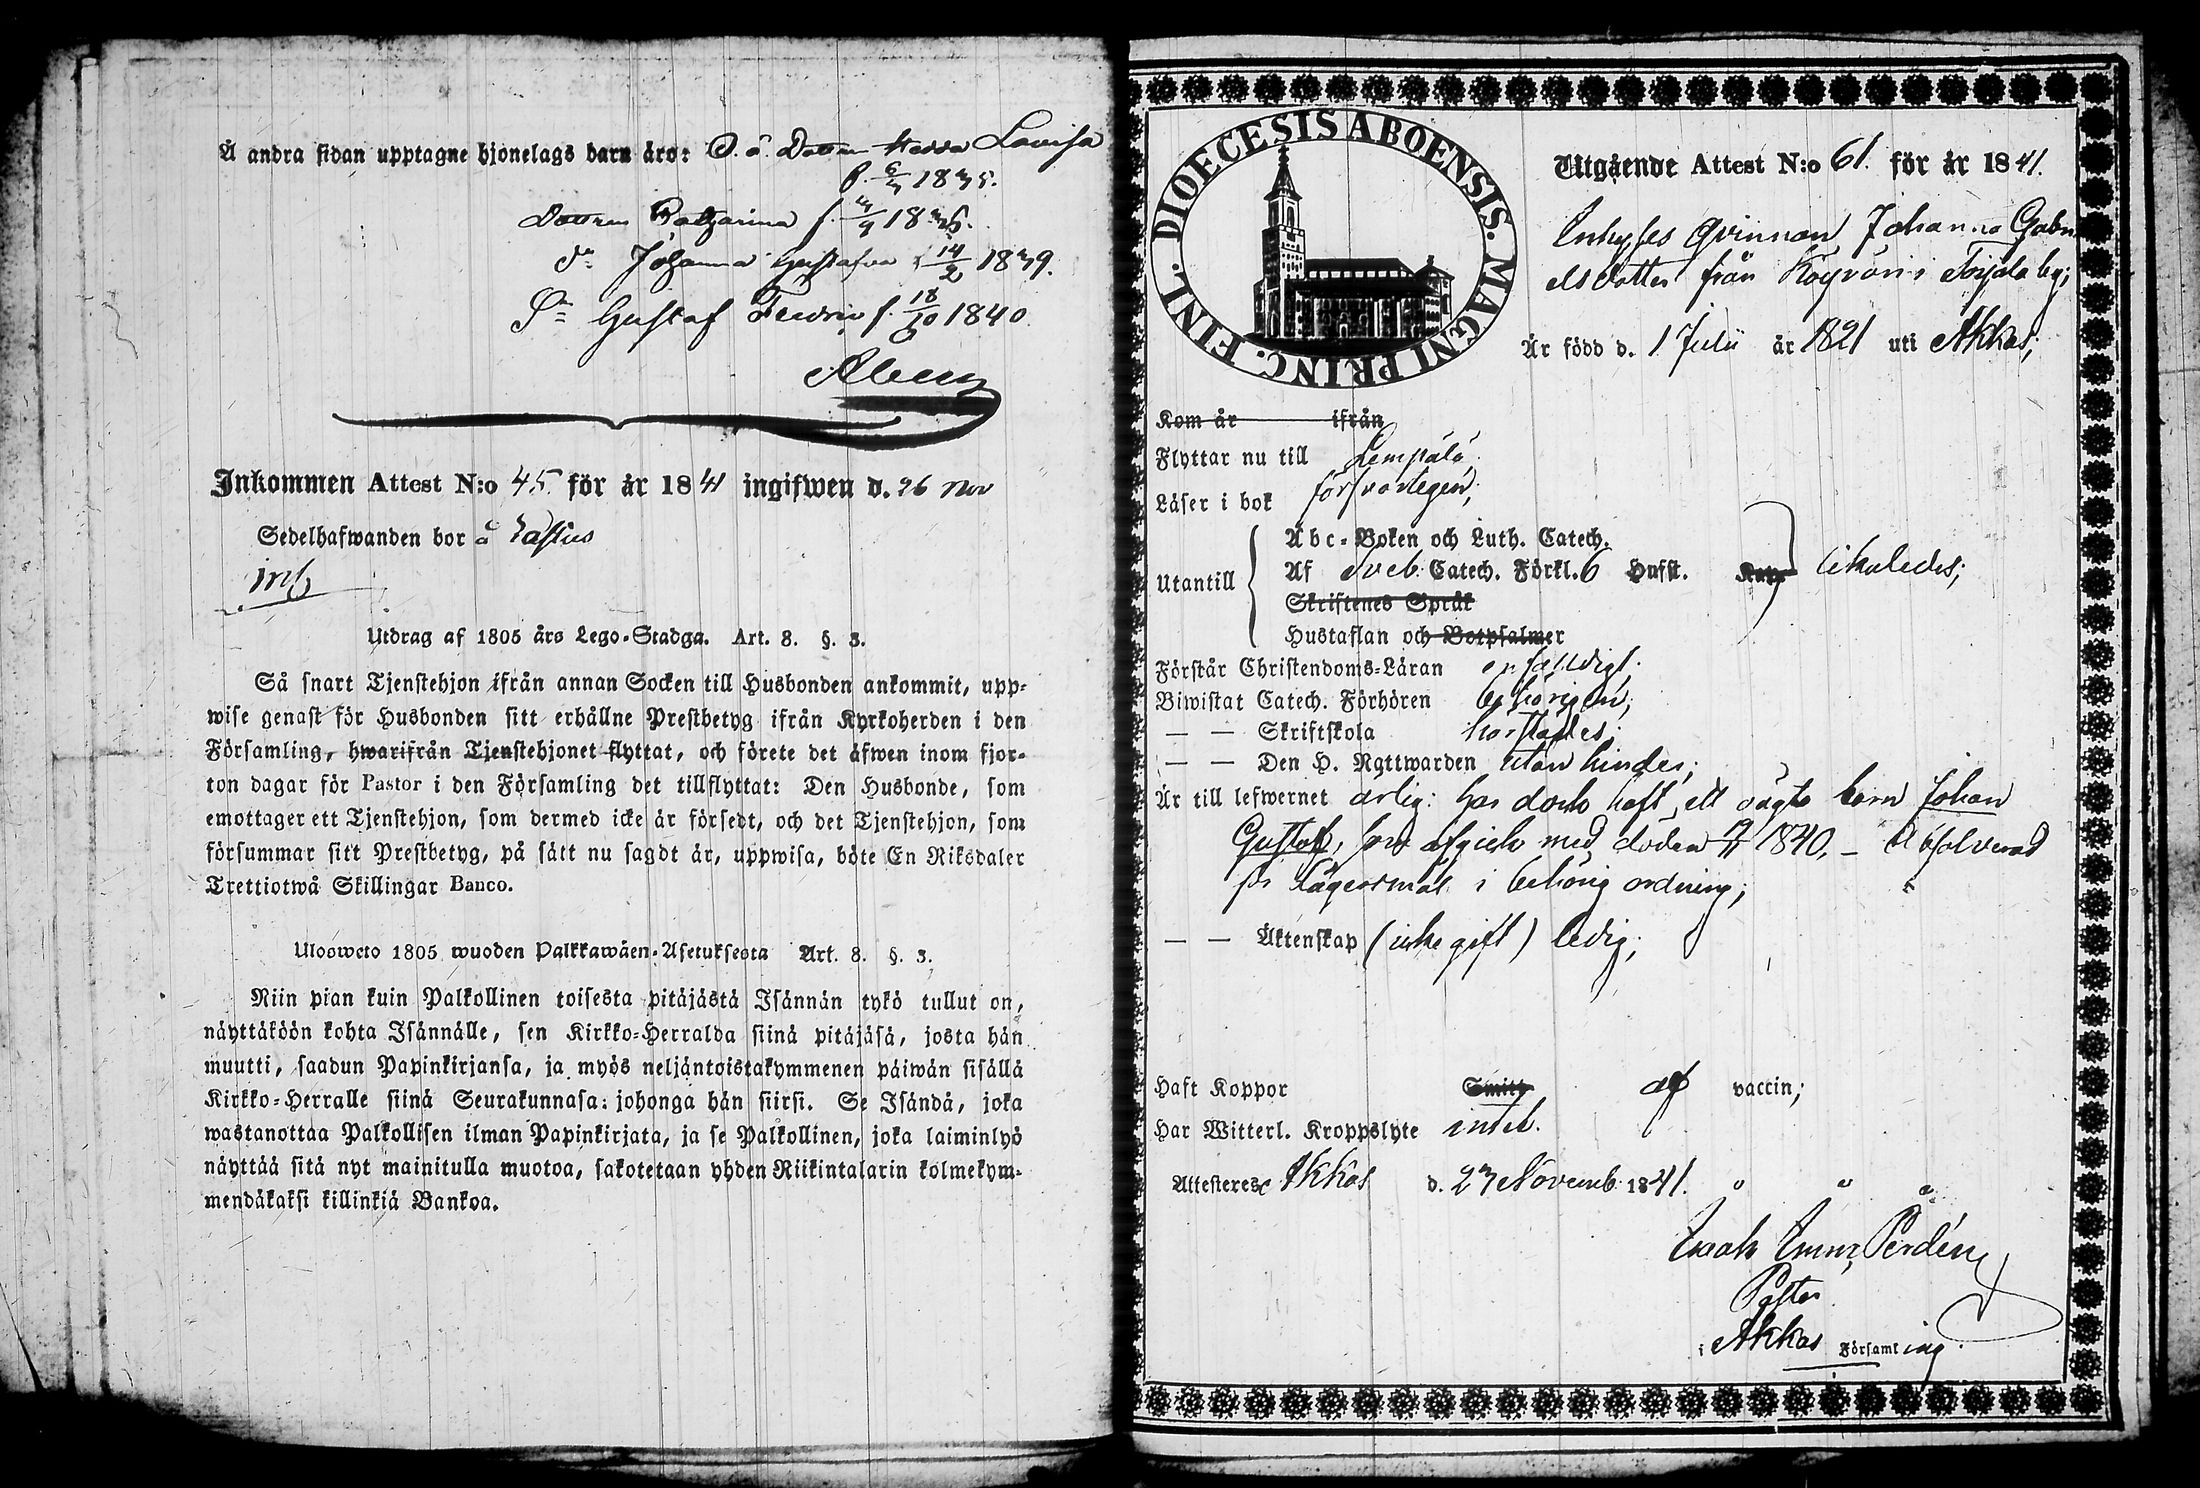 Å andra sidan upptagne hjonelags barn äro: O. ä. Dottren Hedda Lovisa
f. 6/7 1835.
Dottren Catharina f. 1836.
Dn Johanna Gustafva f. 14/2 1839.
Sn Gustaf Fredric f. 18/10 1840.
Inkommen Attest N:o 45. för år 1841 ingifwen d. 26 Nov
Sedelhafwanden bor å
Utdrag af 1805 års Lego-Stadga. Art. 8. §. 3.
Så snart Tjenstehjon ifrån annan Socken till Husbonden ankommit, upp-
wise genast för Husbonden sitt erhållne Prestbetyg ifrån Kyrkoherden i den
Församling, hwarifrån Tjenstehjonet flyttat, och förete det äfwen inom fjor-
ton dagar för Pastor i den Församling det tillflyttat: Den Husbonde, som
emottager ett Tjenstehjon, som dermed icke är försedt, och det Tjenstehjon, som
försummar sitt Prestbetyg, på sätt nu sagdt är, uppwisa, böte En Riksdaler
Trettiotwå Skillingar Banco.
Ulosweto 1805 wuoden Palkkawäen-Asetuksesta Art. 8. §. 3.
Niin pian kuin Palkollinen toisesta pitäjästä Isännän tykö tullut on,
näyttäköön kohta Isännälle, sen Kirkko-Herralda siinä pitäjäsä, josta hän
muutti, saadun Papinkirjansa, ja myös neljäntoistakymmenen päiwän sisällä
Kirkko-Herralle siinä Seurakunnasa: johonga hän siirsi. Se Isändä, joka
wastanottaa Palkollisen ilman Papinkirjata, ja se Palkollinen, joka laiminlyö
näyttää sitä nyt mainitulla muotoa, sakotetaan yhden Riikintalarin kolmekym-
mendäkaksi killinkiä Bankoa.
DIOECESIS ABOENSIS. MAGNI PRINC. FINL.
Utgående Attest N:o 61. för år 1841.
Inhyses qvinnan Johanna Gabri
elsdotter från by;
Är född d. 1 Julii år 1821 uti Akkas;
Kom år ifrån
Flyttar nu till Lempälä
Läser i bok försvarligen;
Utantill
Abc-Boken och Luth. Catech.
Af Sveb. Catech. Förkl. 6 Hufst. Kap. likaledes;
Skriftenes Språk
Hustaflan och Botpsalmer
Förstår Christendoms-Läran enfalldigt;
Biwistat Catech. Förhören behörigen;
— — Skriftskola
— — Den H. Nattwarden utan hinder;
Är till lefwernet ärlig: har dock haft ett oägta barn Johan
Gustaf, som afgick med döden 1840. — Absolverad
för Lägersmål i behörig ordning;
— — Äktenskap (icke gift) ledig;
Haft Koppor Smitt af vaccin;
Har Witterl. Kroppslyte intet.
Attesteres Akkas d. 23 Novemb. 1841.
Pastor
i Akkas Församling.